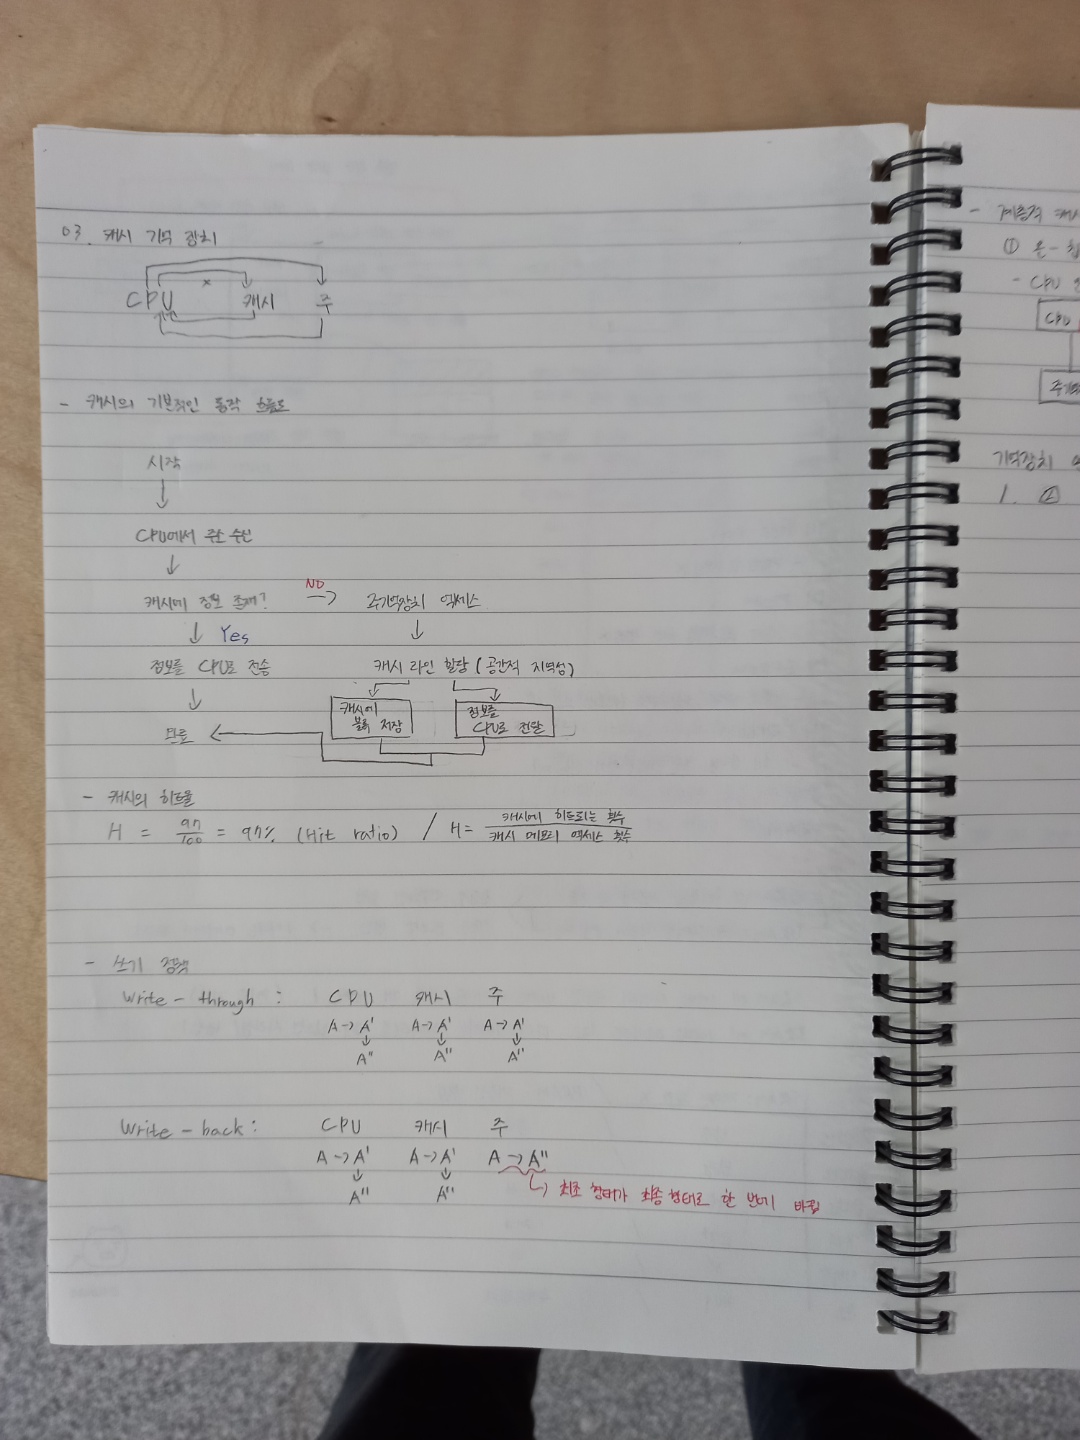 03. 캐시 기억 장치
×
CPU 캐시 주
- 캐시의 기본적인 동작 흐름도
시작
↓
CPU에서 주소 수신
↓
캐시에 정보 존재? NO → 주기억장치 엑세스
↓ Yes ↓
정보를 CPU로 전송 캐시 라인 할당 (공간적 지역성)
↓
캐시에 블록 저장
정보를 CPU로 전달
완료
- 캐시의 히트율
H = 97/100 = 97% (Hit ratio) / H = 캐시에 히트되는 횟수/캐시 메모리 엑세스 횟수
- 쓰기 정책
Write - through : CPU 캐시 주
A → A' A → A' A → A'
↓ ↓ ↓
A" A" A"
Write - back : CPU 캐시 주
A → A' A → A' A → A"
↓ ↓
A" A"
↳ 최초 형태가 최종 형태로 한 번에 바뀜
- 계층적 캐시
① 온 - 칩
- CPU
CPU
주기억
기억장치
1. ②